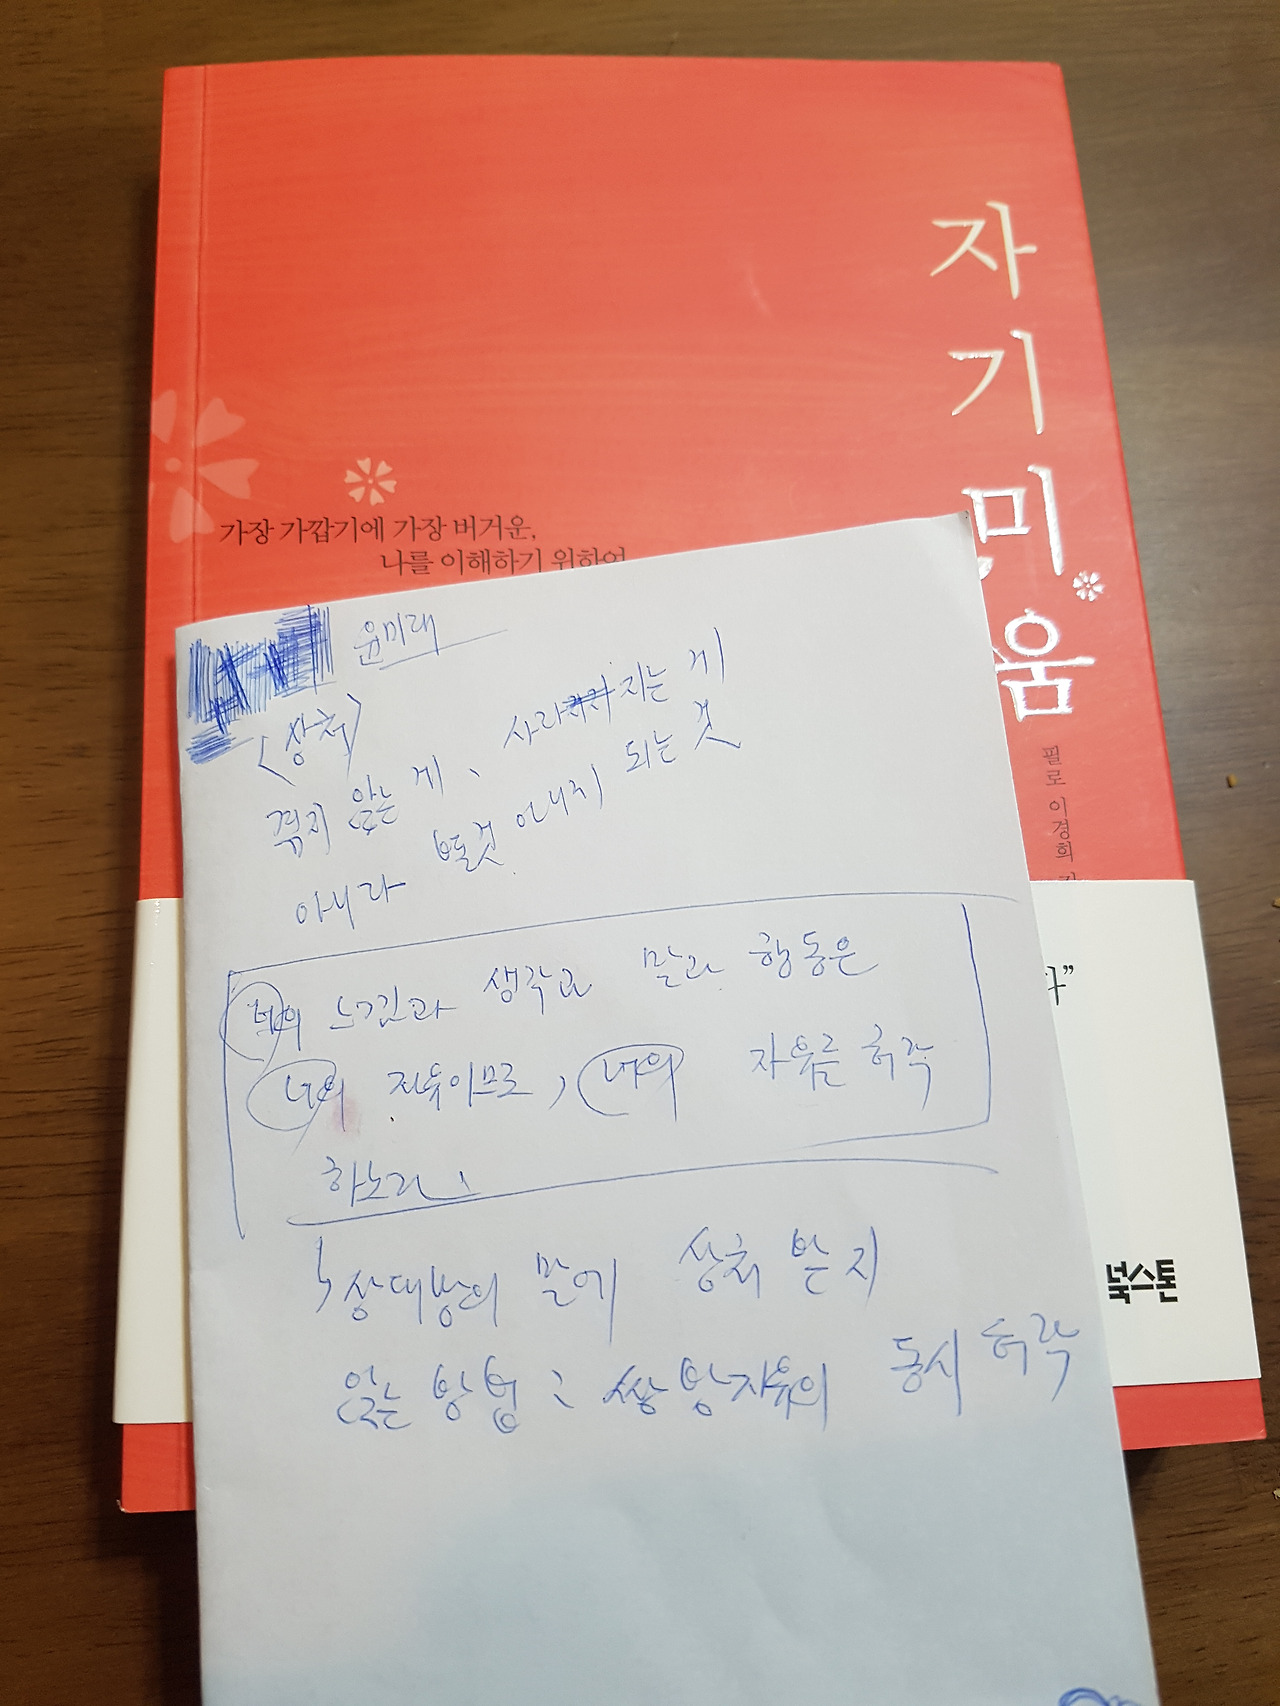 자기미움
가장 가깝기에 가장 버거운,
나를 이해하기 위하여
필로 이경희
다”
북스톤
윤미래
<상처>
겪지 않는 게, 사라지는 게
아니라 별것 아니지 되는 것
너의 느낌과 생각과 말과 행동은
너의 자유이므로, 너의 자유를 허락
하노라.
상대방의 말에 상처 받지
않는 방법 : 쌍방자유의 동시 허락